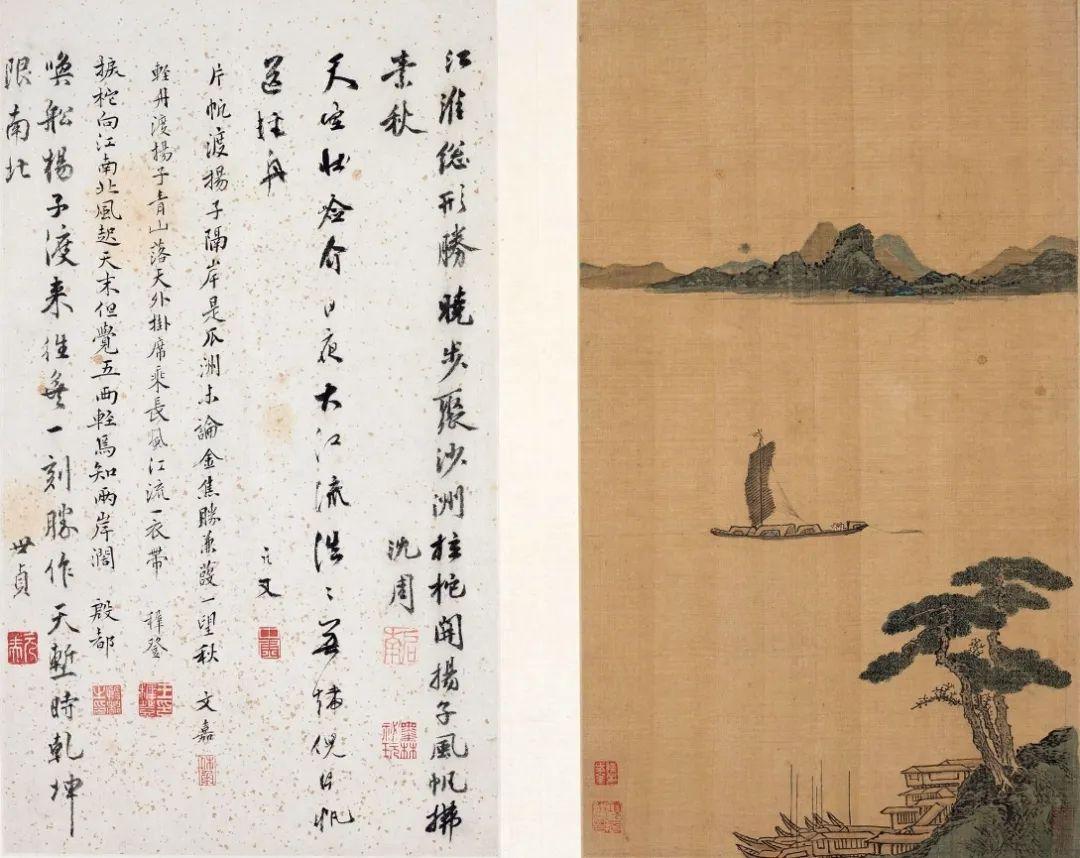 江淮総形勝曉步聚沙洲拄柁開揚子風帆拂
素秋 沈周
天空日夜大江流浩〻無倪
舟
片帆渡揚子隔岸是瓜洲未論金焦勝蒹葭一望秋 文嘉
輕舟渡揚子青山落天外掛席乘長風江流一衣帶 穉登
捩柁向江南北風起天末但覺五兩輕焉知兩岸濶 殷都
喚船楊子渡来往無一刻勝作天塹時乾坤
限南北 世貞